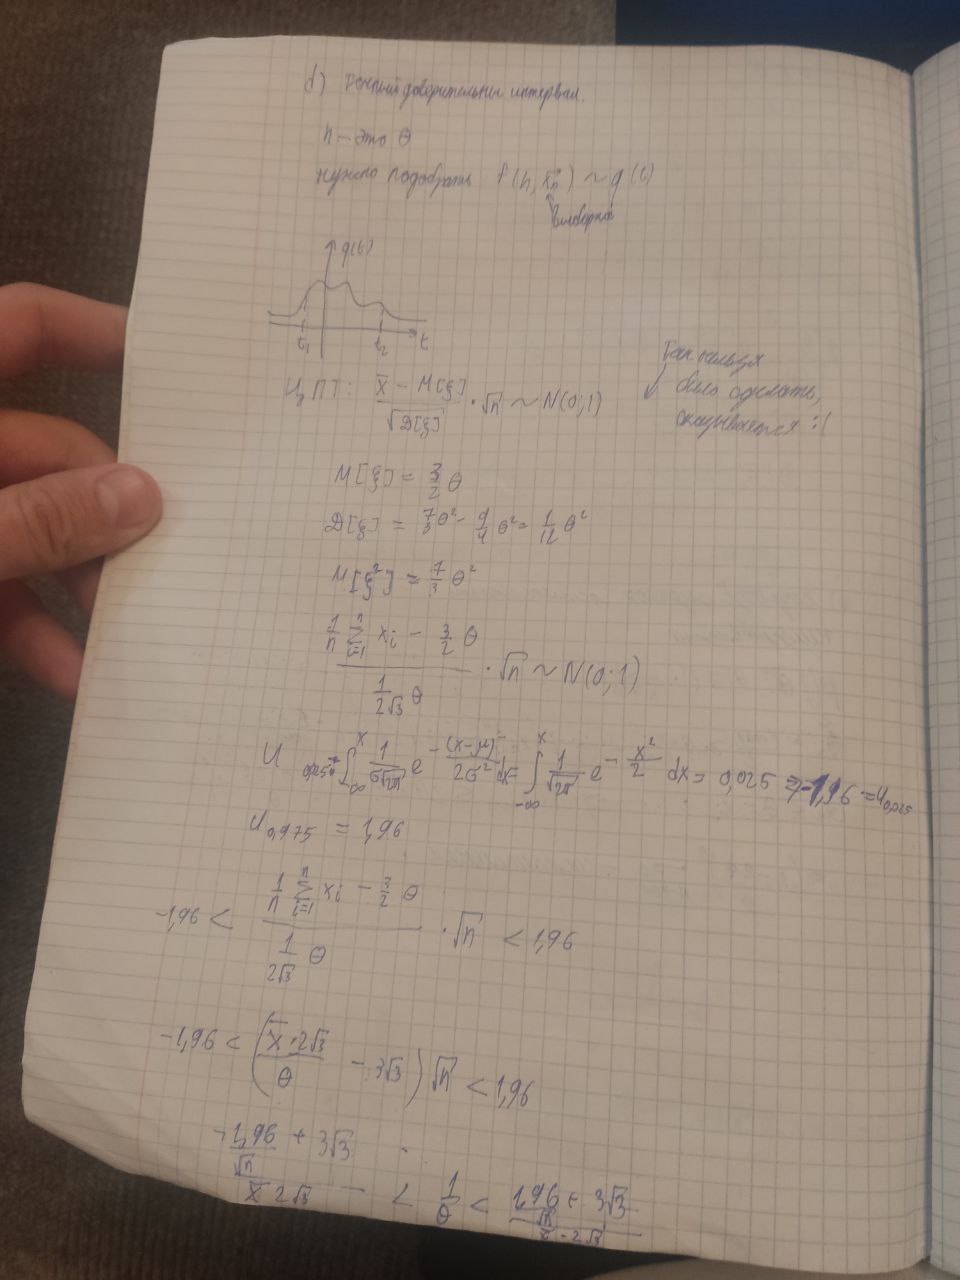 б) Точный доверительный интервал.
h - это θ
нужно подобрать f(h, x⃗n) ~ q(t)
выборка
q(t)
t₁ t₂ t
ЦПТ: (X̅ - M[ξ])/√D[ξ] · √n ~ N(0;1)
Так нельзя
было сделать,
оказывается :(
M[ξ] = 3/2 θ
D[ξ] = 7/3 θ² - 9/4 θ² = 1/12 θ²
M[ξ²] = 7/3 θ²
(1/n Σ_{i=1}^{n} xi - 3/2 θ)/(1/(2√3) θ) · √n ~ N(0;1)
U_{0,025} = ∫_{-∞}^{x} 1/(σ√2π) e^{-(x-μ)²/2σ²} dx = ∫_{-∞}^{x} 1/√2π e^{-x²/2} dx = 0,025 ⇒ -1,96 = U_{0,025}
U_{0,975} = 1,96
-1,96 < (1/n Σ_{i=1}^{n} xi - 3/2 θ)/(1/(2√3) θ) · √n < 1,96
-1,96 < (X̅·2√3/θ - 3√3) √n < 1,96
(-1,96/√n + 3√3)/(X̅ 2√3) < 1/θ < (1,96/√n + 3√3)/(X̅·2√3)